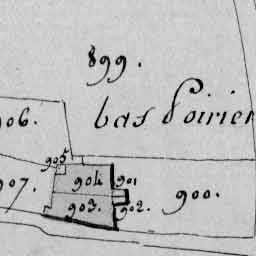 899.
bas Poirier
906.
905
904
901
907.
903.
902.
900.